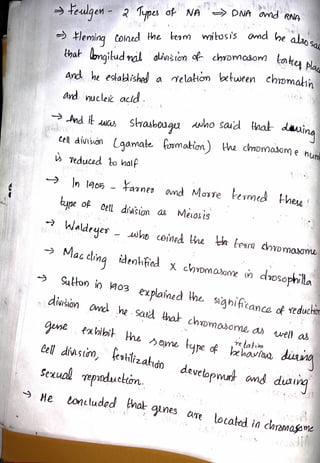 → Feulgen - 2 Types of NA ⇒ DNA and RNA
→ Fleming coined the term mitosis and he also sai
that longitudnal division of chromosom takes plac
and he established a relation between chromatin
and nucleic acid.
→ And it was Strasbouger who said that during
cell division (gamate formation) the chromosome num
is reduced to half
→ In 1905 - Farner and Morre termed these
type of cell division as Meiosis
→ Waldeyer - who coined the term chromosome
→ Mac cling identified X chromosome in drosophilla
→ Sutton in 1903 explained the significance of reductio
division and he said that chromosome as well as
gene exhibit the same type of relative behaviour during
cell division, fertilization development and during
sexual reproduction.
→ He concluded that genes are located in chromosome